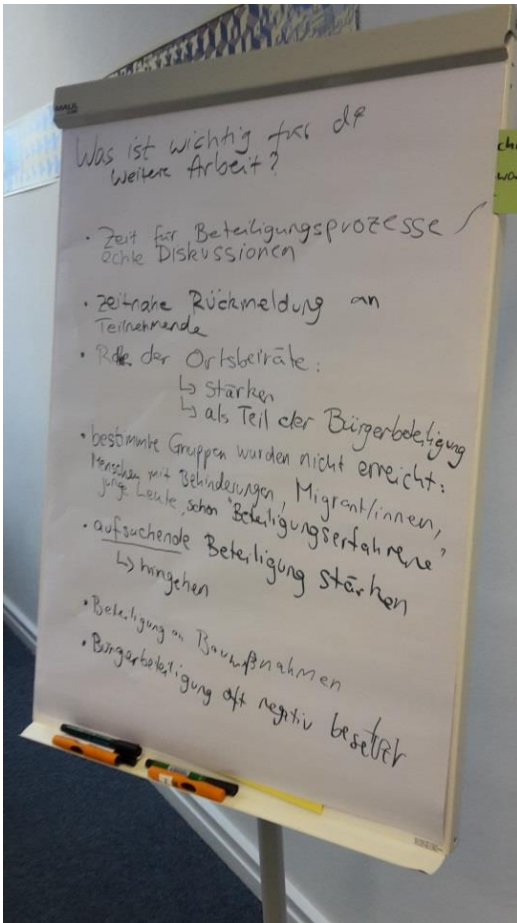 Was ist wichtig für die
weitere Arbeit?
· Zeit für Beteiligungsprozesse /
echte Diskussionen
· zeitnahe Rückmeldung an
Teilnehmende
· Rolle der Ortsbeiräte:
↳ stärken
↳ als Teil der Bürgerbeteiligung
· bestimmte Gruppen wurden nicht erreicht:
Menschen mit Behinderungen, Migrant/innen,
junge Leute, schon "Beteiligungserfahrene"
· aufsuchende Beteiligung stärken
↳ hingehen
· Beteiligung an Baumaßnahmen
· Bürgerbeteiligung oft negativ besetzt